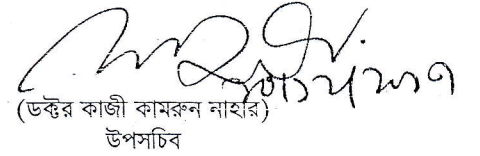 (ডক্টর কাজী কামরুন নাহার)
উপসচিব